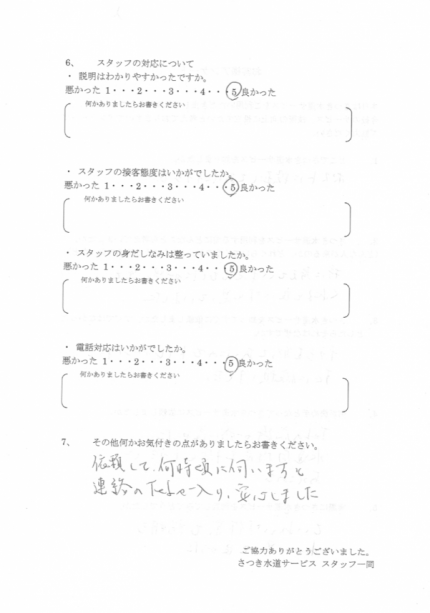 6、 スタッフの対応について
・ 説明はわかりやすかったですか。
悪かった 1・・・2・・・3・・・4・・・5 良かった
何かありましたらお書きください
・ スタッフの接客態度はいかがでしたか。
悪かった 1・・・2・・・3・・・4・・・5 良かった
何かありましたらお書きください
・ スタッフの身だしなみは整っていましたか。
悪かった 1・・・2・・・3・・・4・・・5 良かった
何かありましたらお書きください
・ 電話対応はいかがでしたか。
悪かった 1・・・2・・・3・・・4・・・5 良かった
何かありましたらお書きください
7、 その他何かお気付きの点がありましたらお書きください。
依頼して、何時頃に伺いますと
連絡の入り、安心しました
ご協力ありがとうございました。
さつき水道サービス スタッフ一同